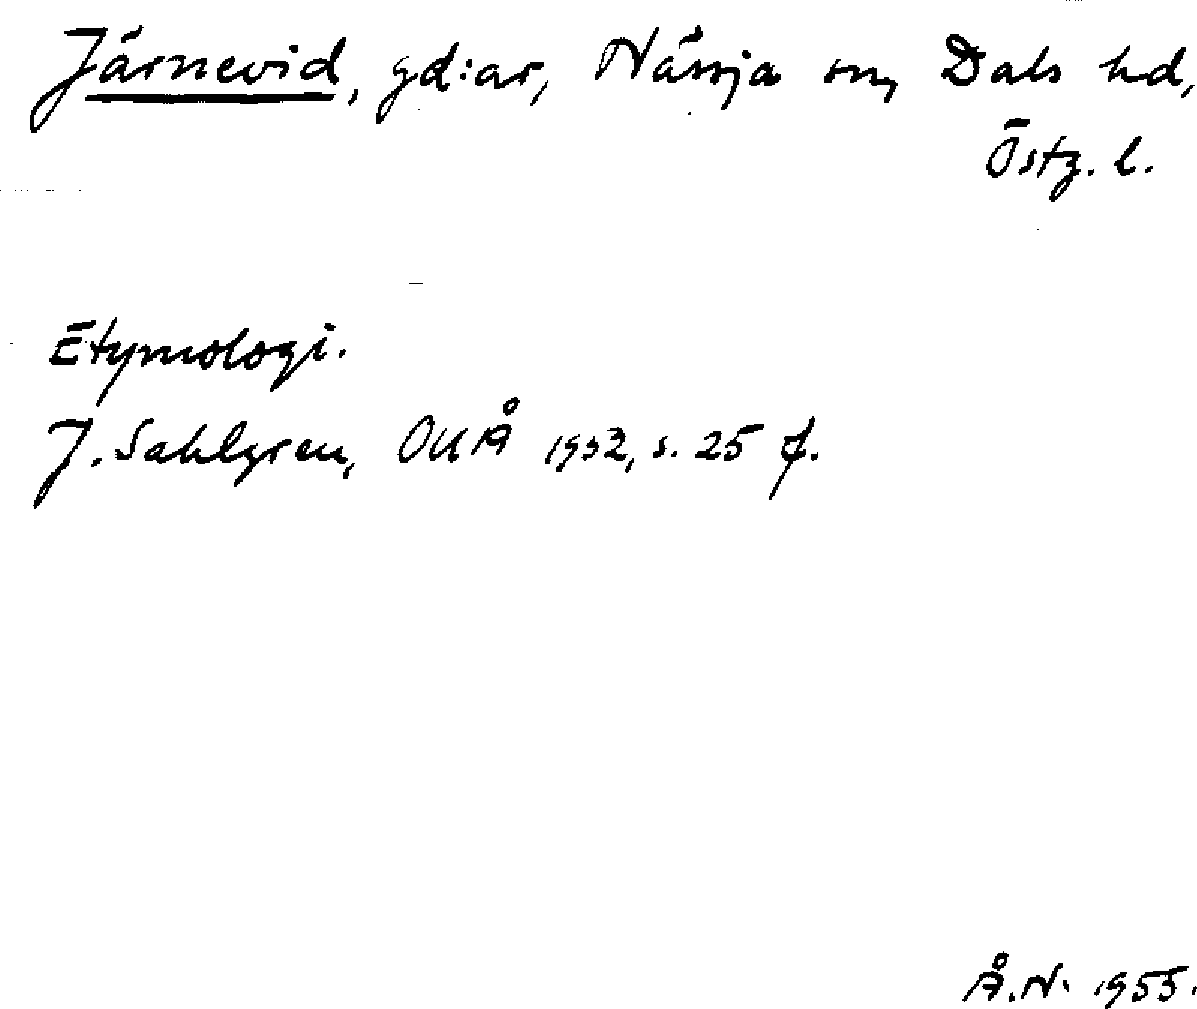 Järnevid, gd:ar, Nässja sn, Dals hd,
Östg. l.
Etymologi.
J. Sahlgren, OUÅ 1932, s. 25 f.
Å.N. 1955.